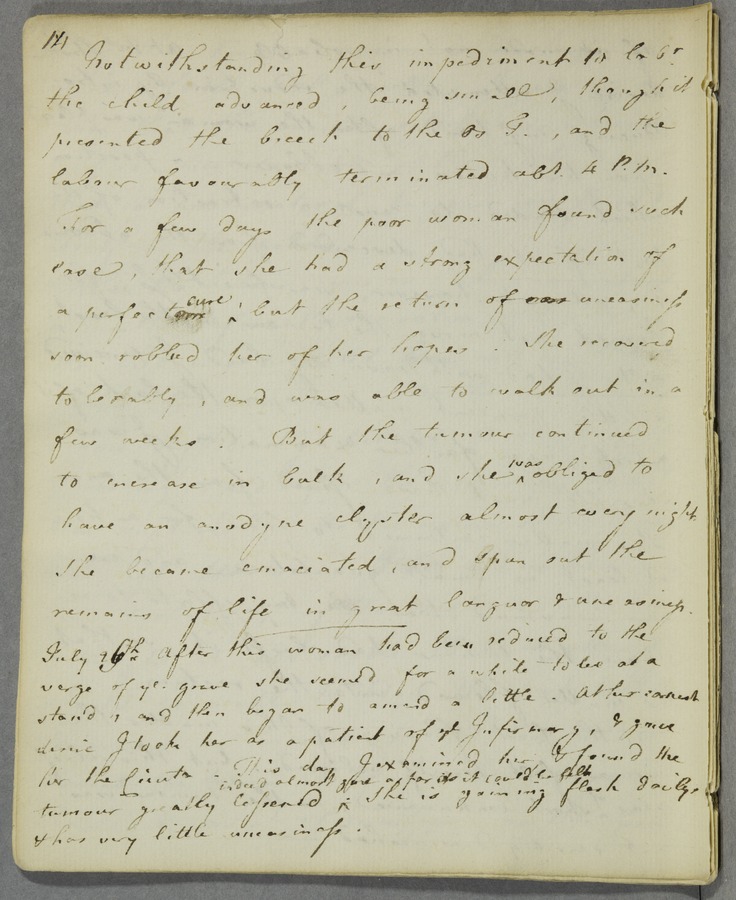 Notwithstanding this impediment to labr
the child advanced, being small, though it
presented the breech to the Os T., and the
labour favourably terminated abt. 4 P.M.
For a few days the poor woman found such
ease, that she had a strong expectation of
a perfect cure; but the return of uneasiness
soon robbed her of her hopes. She recovered
tolerably, and was able to walk out in a
few weeks. But the tumour continued
to increase in bulk, and she was obliged to
have an anodyne clyster almost every night.
She became emaciated, and spun out the
remains of life in great languor & uneasiness.
July after this woman had been reduced to the
verge of ye. grave she seemed for a while to be at a
stand, and then began to amend a little. At her earnest
desire I took her as a patient of ye Infirmary, & gave
her the Cicuta. This day I examined her & found the
tumour greatly lessened indeed almost gone as far as it could be felt. She is gaining flesh daily
& has very little uneasiness.